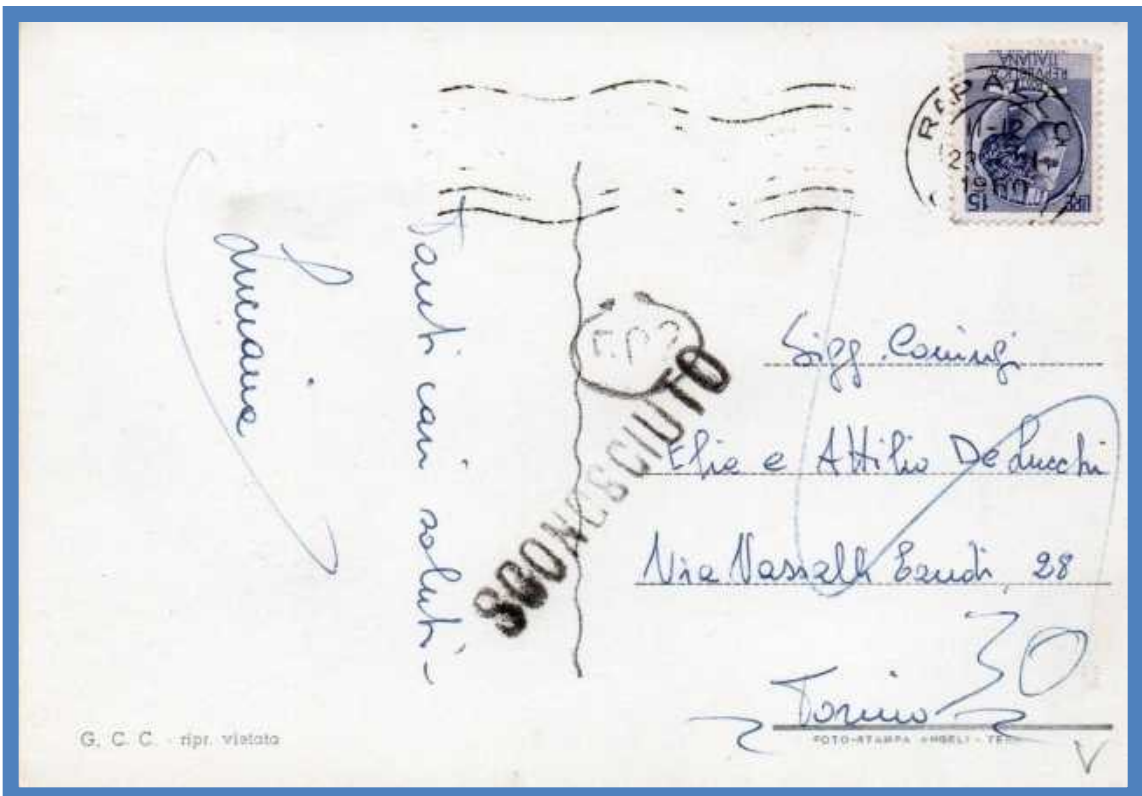 REPUBBLICA
ITALIANA
LIRE 15
RAPALLO
11-12
23
1960
Tanti cari saluti -
Luciana
SCONOSCIUTO
Sigg. Coniugi
Elia e Attilio De Lucchi
Via Vassalli Eandi, 28
30
Torino
G. C. C. - ripr. vietata
FOTO-STAMPA ANGELI - TERNI
V